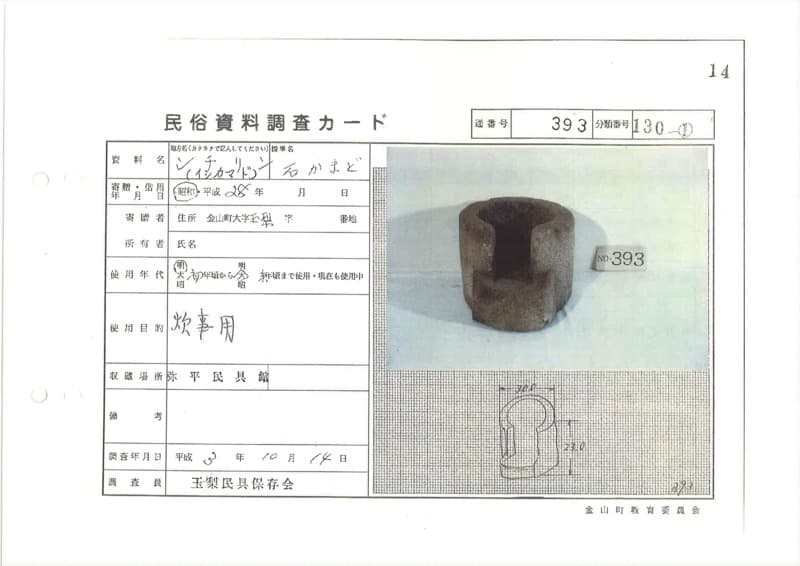 14
民俗資料調査カード
通番号 393 分類番号 130-①
資料名 地方名(カタカナで記入してください) 標準名
(イシカマド) 石かまど
寄贈・借用年月日 昭和・平成 28年 月 日
寄贈者 住所 金山町大字玉梨 字 番地
所有者 氏名
使用年代 明大昭 初年頃から 明大昭 末年頃まで使用・現在も使用中
使用目的 炊事用
収蔵場所 弥平民具館
備考
調査年月日 平成 3年 10月 14日
調査員 玉梨民具保存会
NO.393
30.0
23.0
393
金山町教育委員会